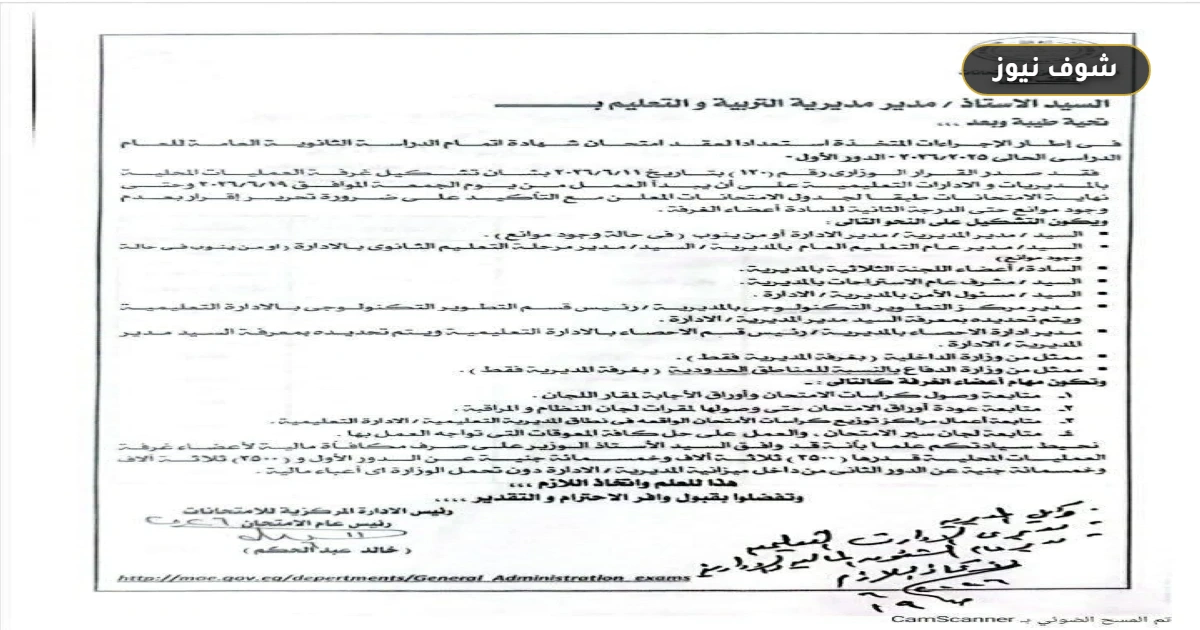 شوف نيوز
السيد الأستاذ / مدير مديرية التربية و التعليم بـ
تحية طيبة وبعد ...
فى إطار الإجراءات المتخذة استعدادا لعقد امتحان شهادة اتمام الدراسة الثانوية العامة للعام
الدراسى الحالى ٢٠٢٦/٢٠٢٥ - الدور الأول -
فقد صدر القرار الوزارى رقم (١٢٠) بتاريخ ٢٠٢٦/٦/١١ بشان تشكيل غرفة العمليات المحلية
بالمديريات و الادارات التعليمية على أن يبدأ العمل من يوم الجمعة الموافق ٢٠٢٦/٦/١٩ وحتى
نهاية الامتحانات طبقا لجدول الامتحانات المعلن مع التأكيد على ضرورة تحرير إقرار بعدم
وجود موانع حتى الدرجة الثانية للسادة أعضاء الغرفة .
ويكون التشكيل على النحو التالى :
▪ السيد / مدير المديرية / مدير الادارة أو من ينوب ( فى حالة وجود موانع ) .
▪ السيد / مدير عام التعليم العام بالمديرية / السيد / مدير مرحلة التعليم الثانوى بالادارة (او من ينوب فى حالة
وجود موانع)
▪ السادة / أعضاء اللجنة الثلاثية بالمديرية .
▪ السيد / مشرف عام الاستراحات بالمديرية .
▪ السيد / مسئول الأمن بالمديرية / الادارة .
▪ مدير مركز التطوير التكنولوجى بالمديرية / رئيس قسم التطوير التكنولوجى بالادارة التعليمية
ويتم تحديده بمعرفة السيد مدير المديرية / الادارة .
▪ مدير ادارة الاحصاء بالمديرية / رئيس قسم الاحصاء بالادارة التعليمية ويتم تحديده بمعرفة السيد مدير
المديرية / الادارة .
▪ ممثل من وزارة الداخلية ( بغرفة المديرية فقط ) .
▪ ممثل من وزارة الدفاع بالنسبة للمناطق الحدودية ( بغرفة المديرية فقط ) .
وتكون مهام أعضاء الغرفة كالتالى :-
١- متابعة وصول كراسات الامتحان وأوراق الأجابة لمقار اللجان .
٢- متابعة عودة أوراق الامتحان حتى وصولها لمقرات لجان النظام و المراقبة .
٣- متابعة أعمال مراكز توزيع كراسات الأمتحان الواقعه فى نطاق المديرية التعليمية / الادارة التعليمية .
٤- متابعة لجان سير الامتحان , والعمل على حل كافة المعوقات التى تواجه العمل بها .
نحيط سيادتكم علما بأنة قد وافق السيد الأستاذ الوزير على صرف مكافأة مالية لأعضاء غرفة
العمليات المحلية قدرها (٣٥٠٠) ثلاثة ألاف وخمسمائة جنية عن الدور الأول و (٣٥٠٠) ثلاثة ألاف
وخمسمائة جنية عن الدور الثانى من داخل ميزانية المديرية / الادارة دون تحمل الوزارة اى أعباء مالية .
هذا للعلم واتخاذ اللازم ,,,
وتفضلوا بقبول وافر الاحترام و التقدير ,,,,
رئيس الادارة المركزية للامتحانات
رئيس عام الامتحان
( خالد عبد الحكم )
http://moe.gov.eg/depertments/General_Administration_exams
تم المسح الضوئي بـ CamScanner